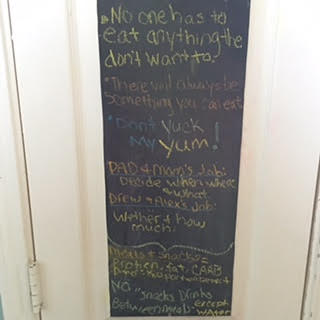 No one has to
eat anything the
don't want to.
"There will always be
Something you can eat
"Don't Yuck
My Yum!
DAD & Mom's Job:
Decide when where
& what.
Drew & Alex's Job:
Wether & how
much.
Meals & Snacks =
Protien, fat, CARB
NO "snacks Drinks
Between meals: except
water